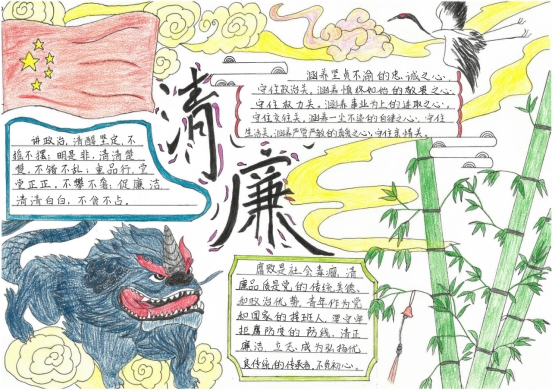 清廉
涵养坚贞不渝的忠诚之心,
守住政治关,涵养慎终如始的敬畏之心
守住权力关,涵养事业为上的进取之心,
守住交往关,涵养一尘不染的自律之心,守住
生活关,涵养严管严教的之心,守住亲情关。
讲政治,清醒坚定,不
摇不摆;明是非,清清楚
楚,不错不乱;重品行,堂
堂正正,不攀不靠;促廉洁,
清清白白,不贪不占。
腐败是社会毒瘤,清
廉品质是党的传统美德、
和政治优势,青年作为党
和国家的接班人,要守牢
拒腐防变的防线,清正
廉洁,立志成为弘扬优
良传统的传承者,不负初心。